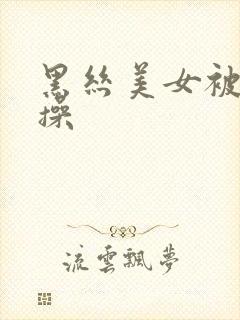 黑絲美女被
操
流雲飄夢